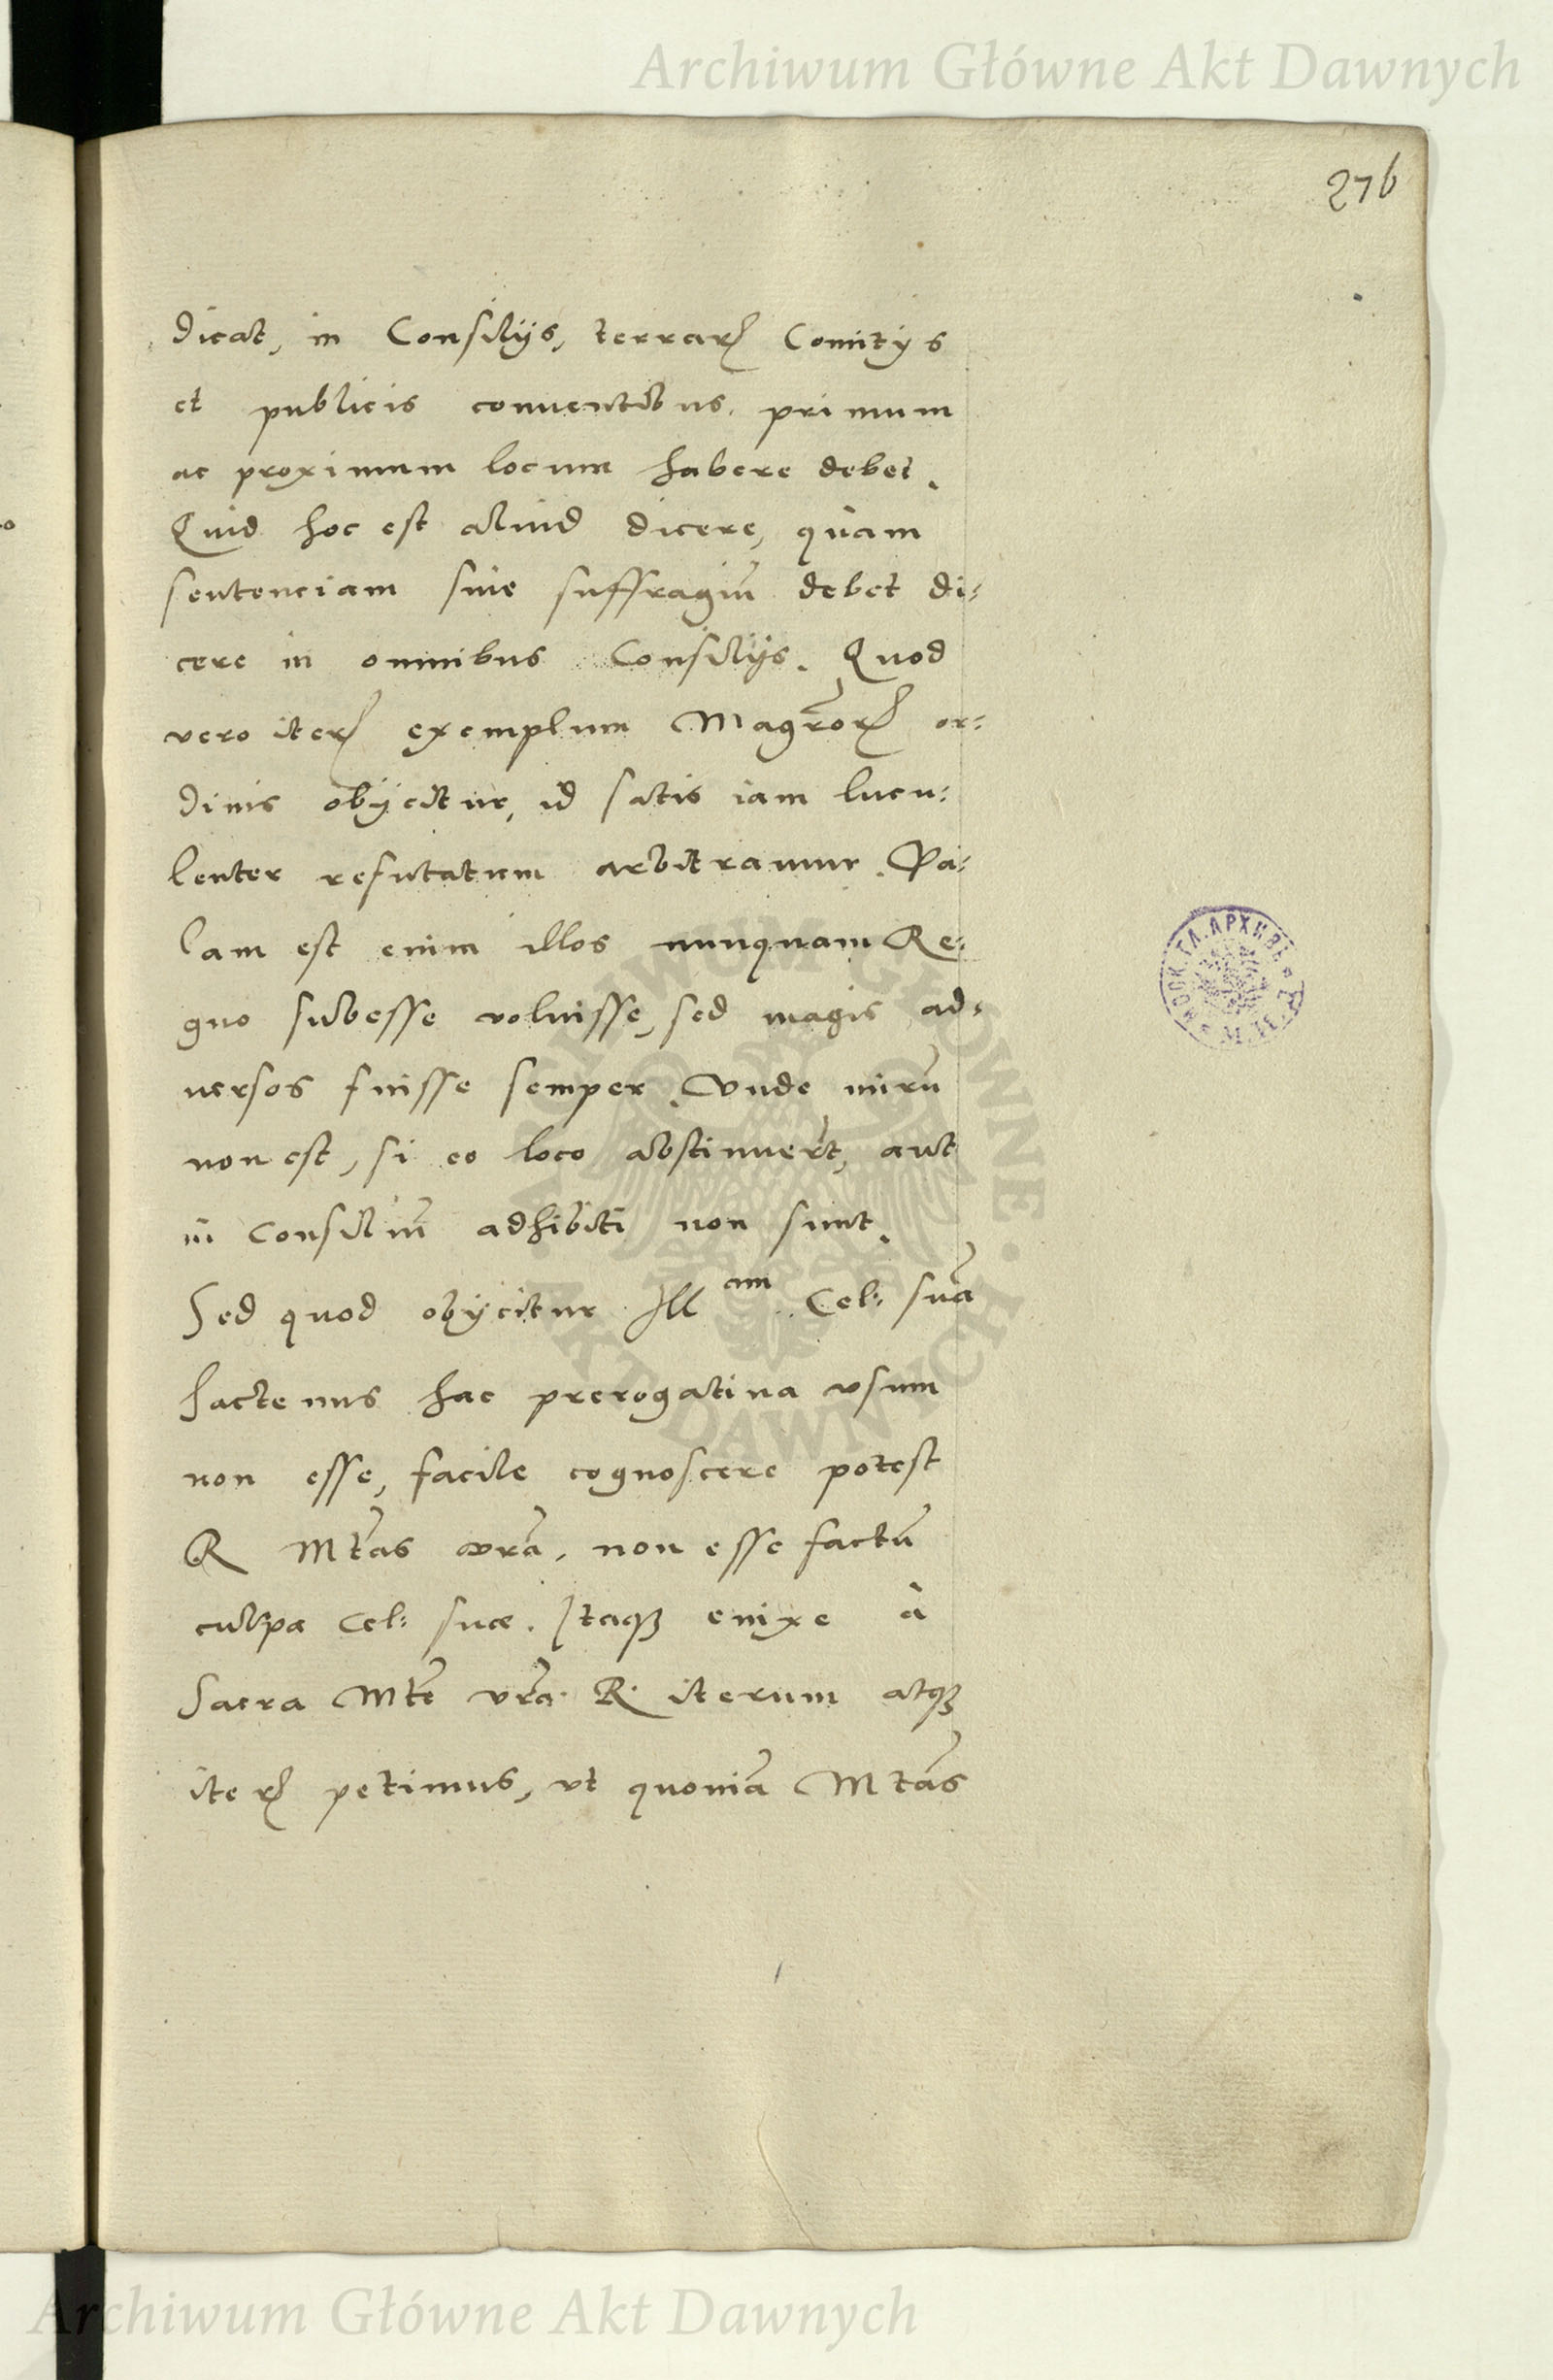 Archiwum Główne Akt Dawnych
276
dicat, in Consilijs, terrarꝝ Comitijs
et publicis conuentibus primum
ac proximum locum habere debet.
Quid hoc est aliud dicere, quàm
sentenciam siue suffragiũ debet di⸗
cere in omnibus Consilijs. Quod
vero iterꝝ exemplum Magr̃orꝝ or⸗
dinis obijcitur, id satis iam lucu⸗
lenter refutatum arbitramur. Pa⸗
lam est enim illos nunquam Re⸗
gno subesse voluisse, sed magis ad⸗
uersos fuisse semper. Vnde mirũ
non est, si eo loco abstinuer̃t, aut
in Consiliũ adhibiti non sunt.
Sed quod obijcitur Ill am Cel: suã
hactenus hac prerogatiua vsum
non esse, facile cognoscere potest
R Mt̃as vr̃a, non esse factũ
culpa Cel: suæ. Itaqꝫ enixe à
Sacra Mt̃e vr̃a R. iterum atqꝫ
iterꝝ petimus, vt quoniã Mtãs
ARCHIWUM GŁÓWNE AKT DAWNYCH
Archiwum Główne Akt Dawnych